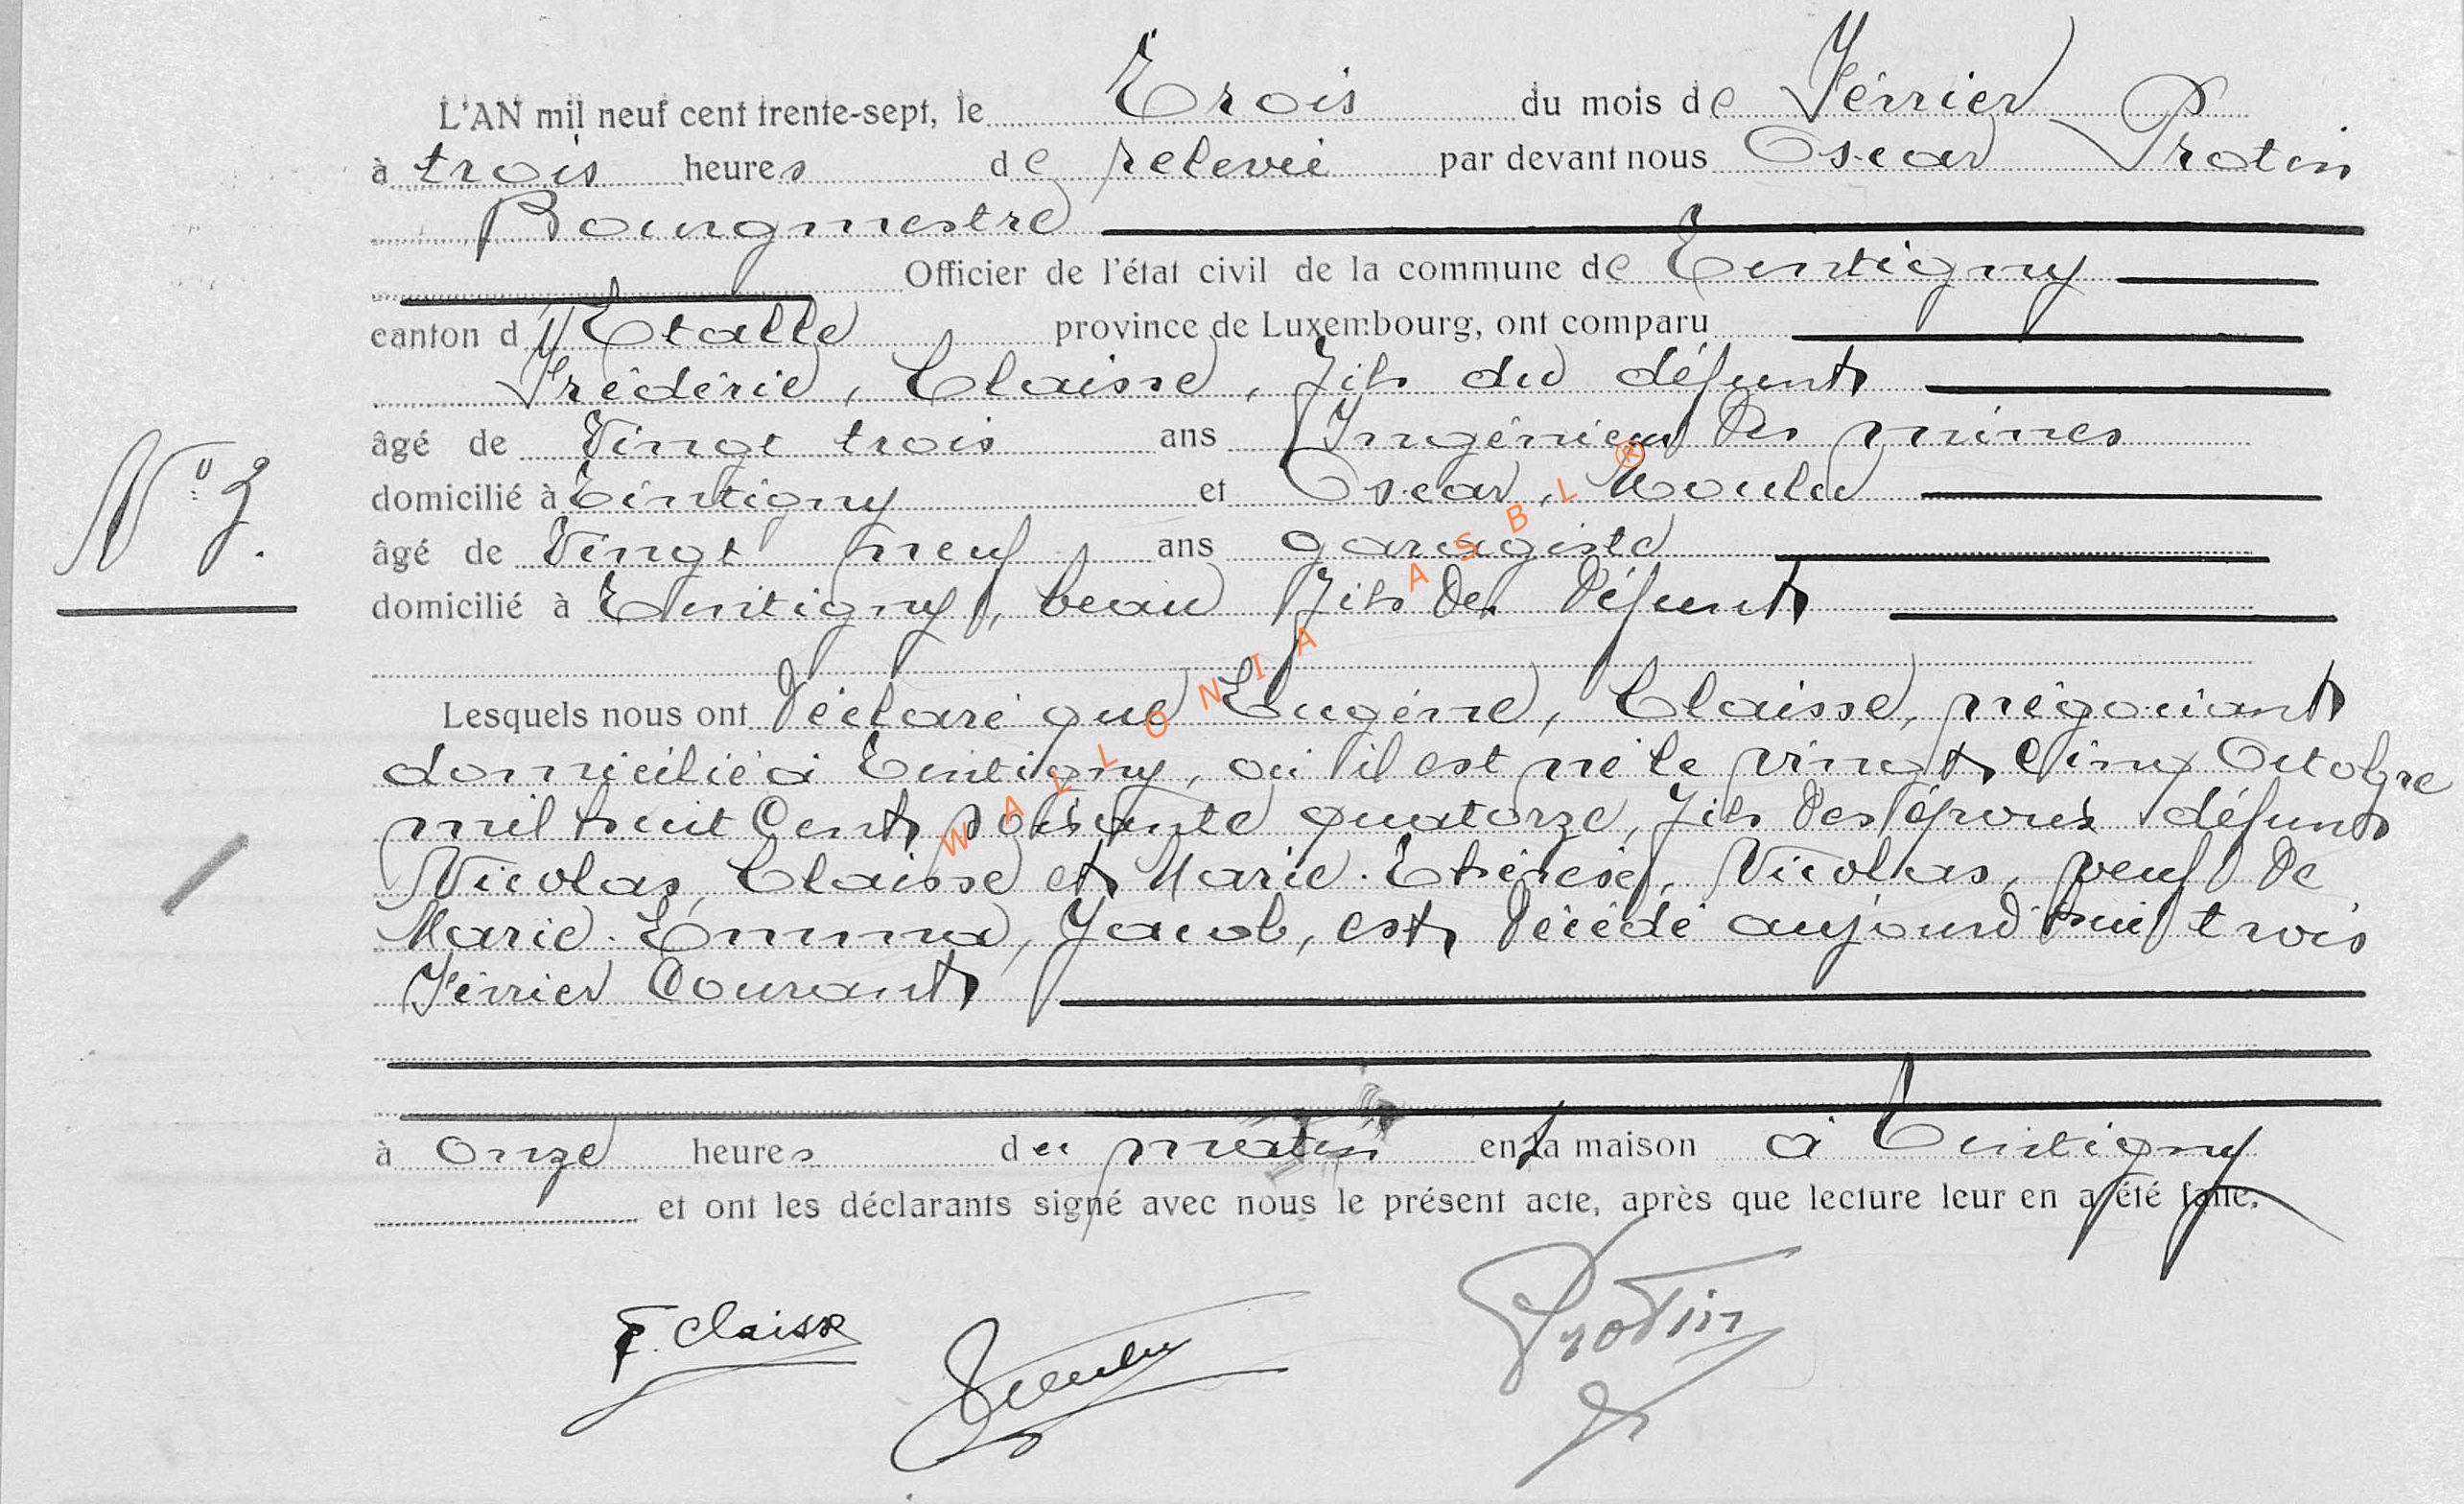 L'AN mil neuf cent trente-sept, le Trois du mois de Février
à trois heures de relevée par devant nous Oscar Protin
Bourgmestre
Officier de l'état civil de la commune de Tintigny
canton d'Etalle province de Luxembourg, ont comparu
Frédéric, Claisse, fils du défunt
âgé de Vingt trois ans Ingénieur des mines
domicilié à Tintigny et Oscar, Moulu
N° 3.
âgé de Vingt neuf ans garagiste
domicilié à Tintigny, beau fils du défunt
Lesquels nous ont déclaré que Eugéne, Claisse, négociant
domicilié à Tintigny, où il est né le vingt cinq Octobre
mil huit Cent soixante quatorze, fils des époux défunts
Nicolas, Claisse et Marie-Thérèse, Nicolas, veuf de
Marie-Emma, Jacob, est décédé aujourd'hui trois
Février Courant
à onze heures du matin en sa maison à Tintigny
et ont les déclarants signé avec nous le présent acte, après que lecture leur en a été faite.
F. Claisse
Protin
WALLONIA ASBL ®